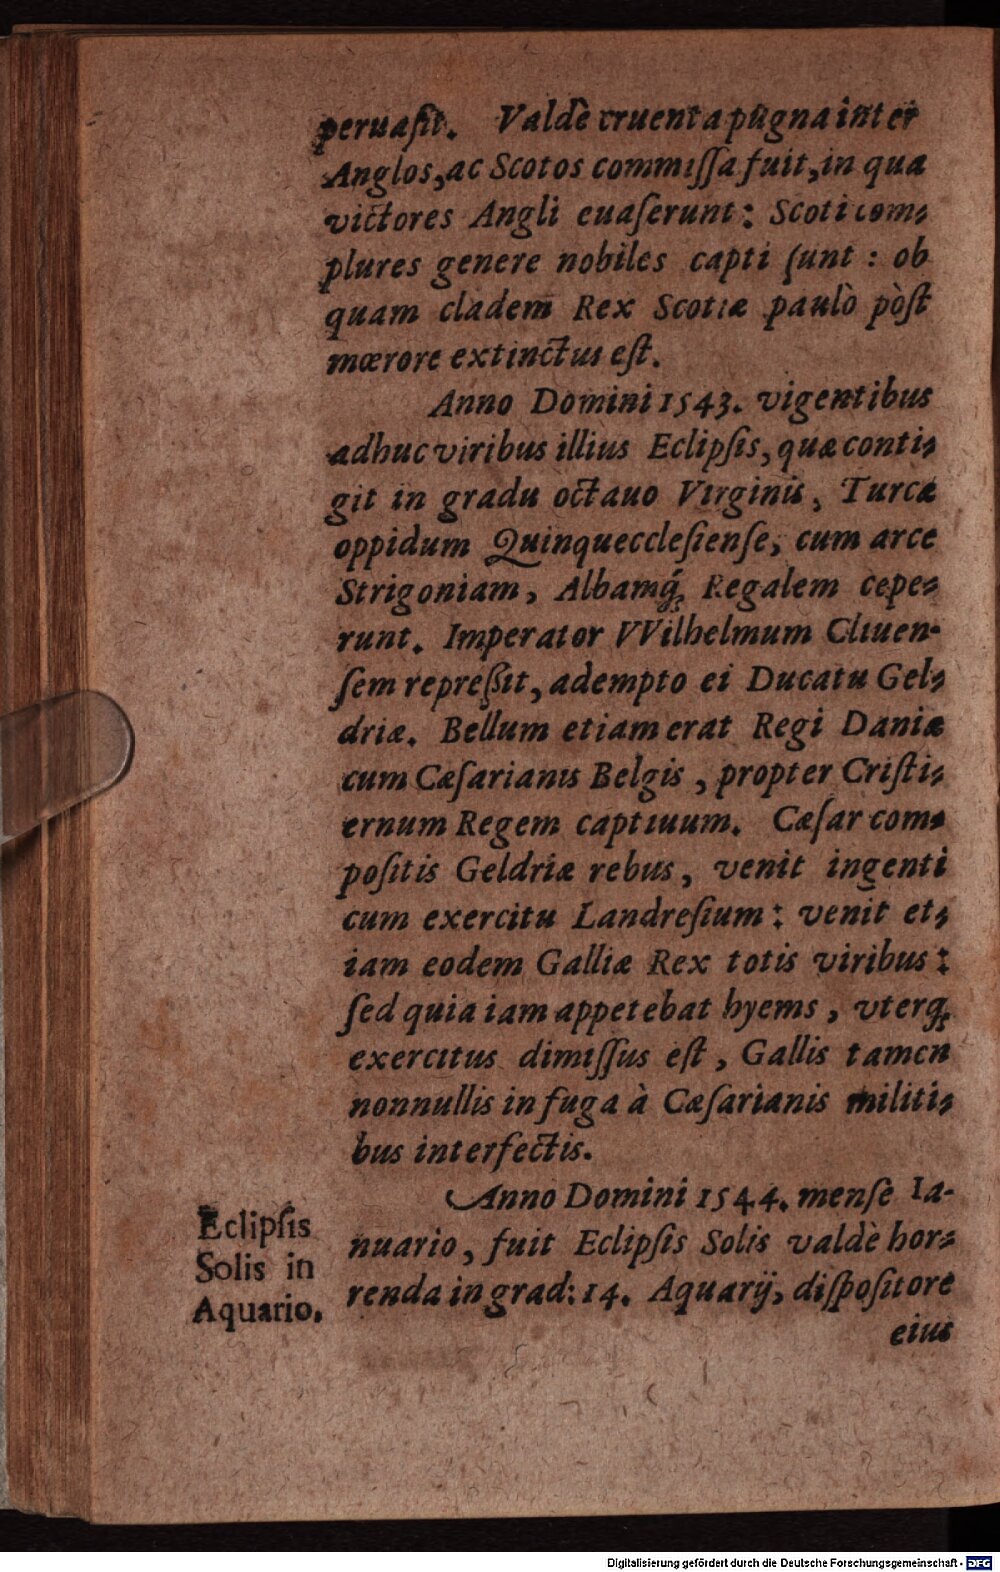 peruaſit. Valdè cruenta pugna inter
Anglos, ac Scotos commiſſa fuit, in qua
victores Angli euaſerunt: Scoti com-
plures genere nobiles capti ſunt: ob
quam cladem Rex Scotiæ paulò pòſt
mœrore extinctus eſt.
Anno Domini 1543. vigentibus
adhuc viribus illius Eclipſis, quæ conti-
git in gradu octauo Virginis, Turcæ
oppidum Quinqueccleſienſe, cum arce
Strigoniam, Albamq́; Regalem cepe-
runt. Imperator VVilhelmum Cliuen-
ſem repreßit, adempto ei Ducatu Gel-
driæ. Bellum etiam erat Regi Daniæ
cum Cæſarianis Belgis, propter Criſti-
ernum Regem captiuum. Cæſar com-
poſitis Geldriæ rebus, venit ingenti
cum exercitu Landreſium: venit et-
iam eodem Galliæ Rex totis viribus:
ſed quia iam appetebat hyems, vterq;
exercitus dimiſſus eſt, Gallis tamen
nonnullis in fuga à Cæſarianis militi-
bus interfectis.
Anno Domini 1544. menſe Ia-
nuario, fuit Eclipſis Solis valdè hor-
renda in grad: 14. Aquarij, diſpoſitore
eius
Eclipſis
Solis in
Aquario.
Digitalisierung gefördert durch die Deutsche Forschungsgemeinschaft - DFG